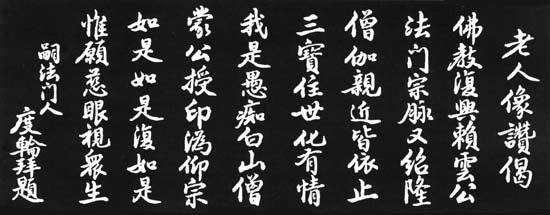 老人像讚偈
佛教復興賴雲公
法门宗脉又紹隆
僧伽親近皆依止
三寶住世化有情
我是愚痴白山僧
蒙公授印溈仰宗
如是如是復如是
惟願慈眼視眾生
嗣法门人
度輪拜題